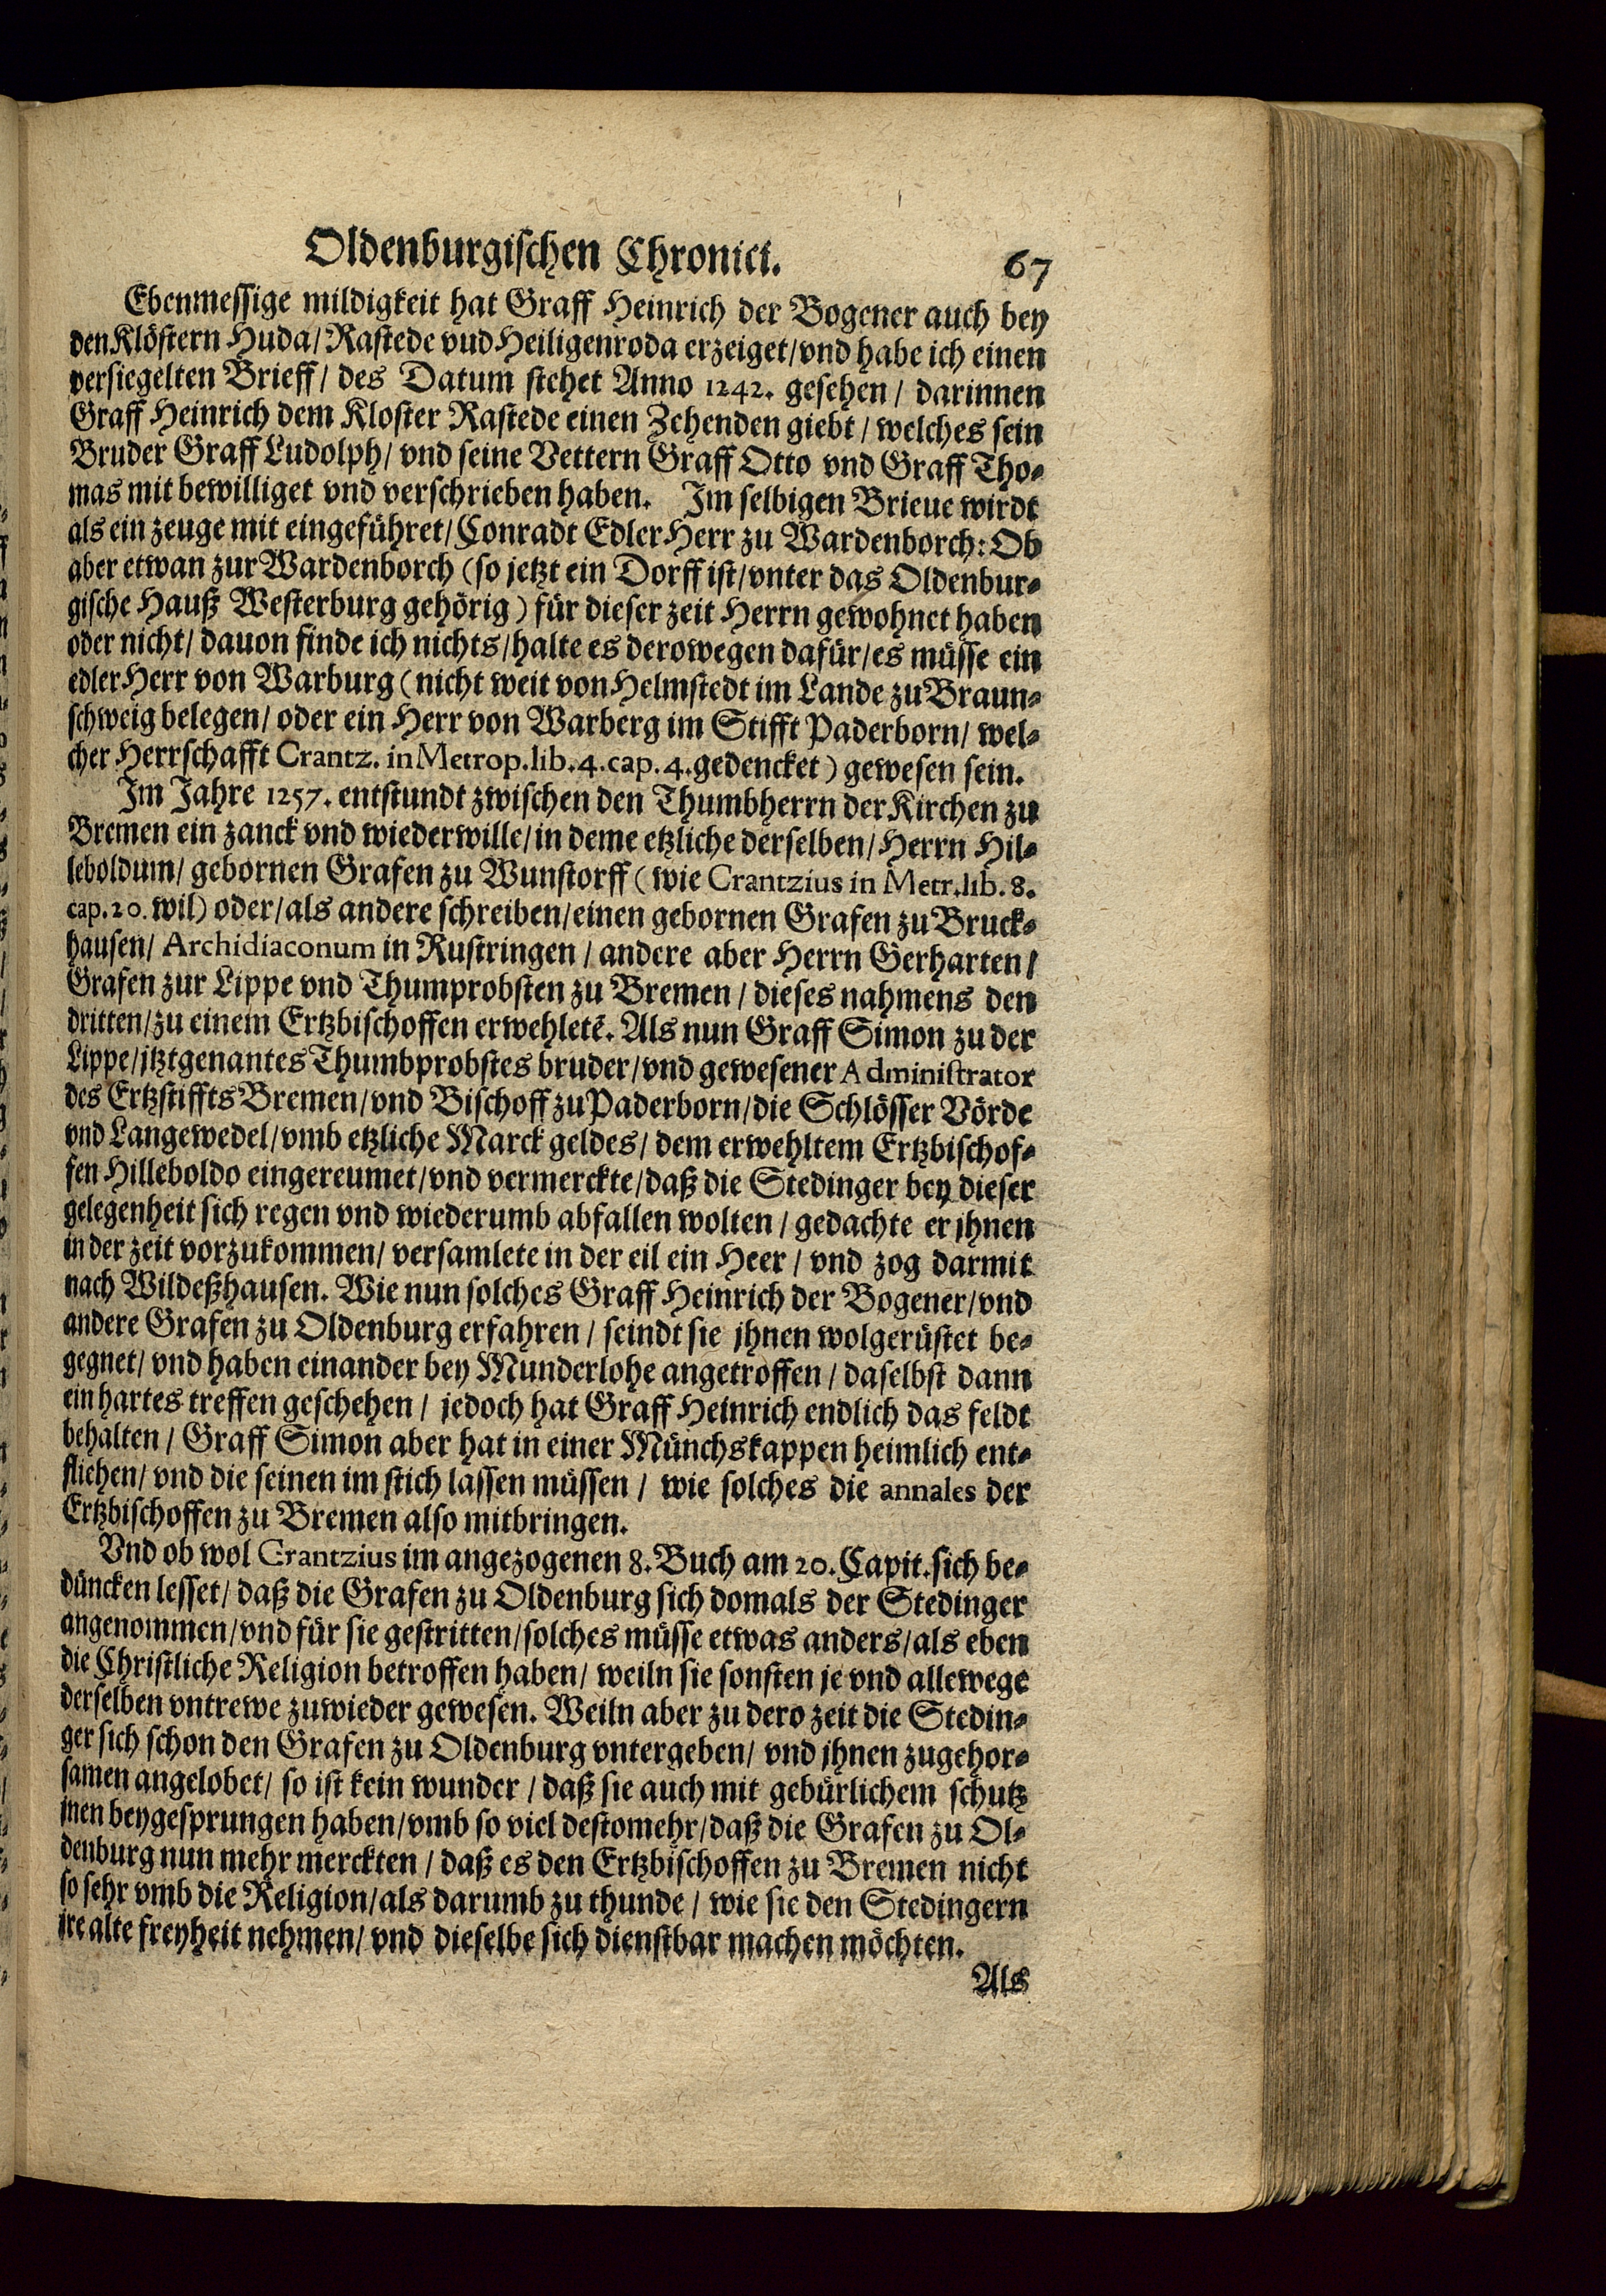 Oldenburgischen Chronici. 67
Ebenmessige mildigkeit hat Graff Heinrich der Bogener auch bey
den Klöstern Huda/ Rastede vud Heiligenroda erzeiget/ vnd habe ich einen
versiegelten Brieff/ des Datum stehet Anno 1242. gesehen/ darinnen
Graff Heinrich dem Kloster Rastede einen Zehenden giebt/ welches sein
Bruder Graff Ludolph/ vnd seine Vettern Graff Otto vnd Graff Tho-
mas mit bewilliget vnd verschrieben haben. Im selbigen Brieue wirdt
als ein zeuge mit eingeführet/ Conradt Edler Herr zu Wardenborch: Ob
aber etwan zur Wardenborch (so jetzt ein Dorff ist/ vnter das Oldenbur-
gische Hauß Westerburg gehörig) für dieser zeit Herrn gewohnet haben
oder nicht/ dauon finde ich nichts/ halte es derowegen dafür/ es müsse ein
edler Herr von Warburg (nicht weit von Helmstedt im Lande zu Braun-
schweig belegen/ oder ein Herr von Warberg im Stifft Paderborn/ wel-
cher Herrschafft Crantz. in Metrop. lib. 4. cap. 4. gedencket) gewesen sein.
Im Jahre 1257. entstundt zwischen den Thumbherrn der Kirchen zu
Bremen ein zanck vnd wiederwille/ in deme etzliche derselben/ Herrn Hil-
leboldum/ gebornen Grafen zu Wunstorff (wie Crantzius in Metr. lib. 8.
cap. 20. wil) oder/ als andere schreiben/ einen gebornen Grafen zu Bruck-
hausen/ Archidiaconum in Rustringen/ andere aber Herrn Gerharten/
Grafen zur Lippe vnd Thumprobsten zu Bremen/ dieses nahmens den
dritten/ zu einem Ertzbischoffen erwehletē. Als nun Graff Simon zu der
Lippe/ jtztgenantes Thumbprobstes bruder/ vnd gewesener Administrator
des Ertzstiffts Bremen/ vnd Bischoff zu Paderborn/ die Schlösser Vörde
vnd Langewedel/ vmb etzliche Marck geldes/ dem erwehltem Ertzbischof-
fen Hilleboldo eingereumet/ vnd vermerckte/ daß die Stedinger bey dieser
gelegenheit sich regen vnd wiederumb abfallen wolten/ gedachte er jhnen
in der zeit vorzukommen/ versamlete in der eil ein Heer/ vnd zog darmit
nach Wildeßhausen. Wie nun solches Graff Heinrich der Bogener/ vnd
andere Grafen zu Oldenburg erfahren/ seindt sie jhnen wolgerüstet be-
gegnet/ vnd haben einander bey Munderlohe angetroffen/ daselbst dann
ein hartes treffen geschehen/ jedoch hat Graff Heinrich endlich das feldt
behalten/ Graff Simon aber hat in einer Münchskappen heimlich ent-
fliehen/ vnd die seinen im stich lassen müssen/ wie solches die annales der
Ertzbischoffen zu Bremen also mitbringen.
Vnd ob wol Crantzius im angezogenen 8. Buch am 20. Capit. sich be-
düncken lesset/ daß die Grafen zu Oldenburg sich domals der Stedinger
angenommen/ vnd für sie gestritten/ solches müsse etwas anders/ als eben
die Christliche Religion betroffen haben/ weiln sie sonsten je vnd allewege
derselben vntrewe zuwieder gewesen. Weiln aber zu dero zeit die Stedin-
ger sich schon den Grafen zu Oldenburg vntergeben/ vnd jhnen zugehor-
samen angelobet/ so ist kein wunder/ daß sie auch mit gebürlichem schutz
jnen beygesprungen haben/ vmb so viel destomehr/ daß die Grafen zu Ol-
denburg nun mehr merckten/ daß es den Ertzbischoffen zu Bremen nicht
so sehr vmb die Religion/ als darumb zu thunde/ wie sie den Stedingern
jre alte freyheit nehmen/ vnd dieselbe sich dienstbar machen möchten.
Als